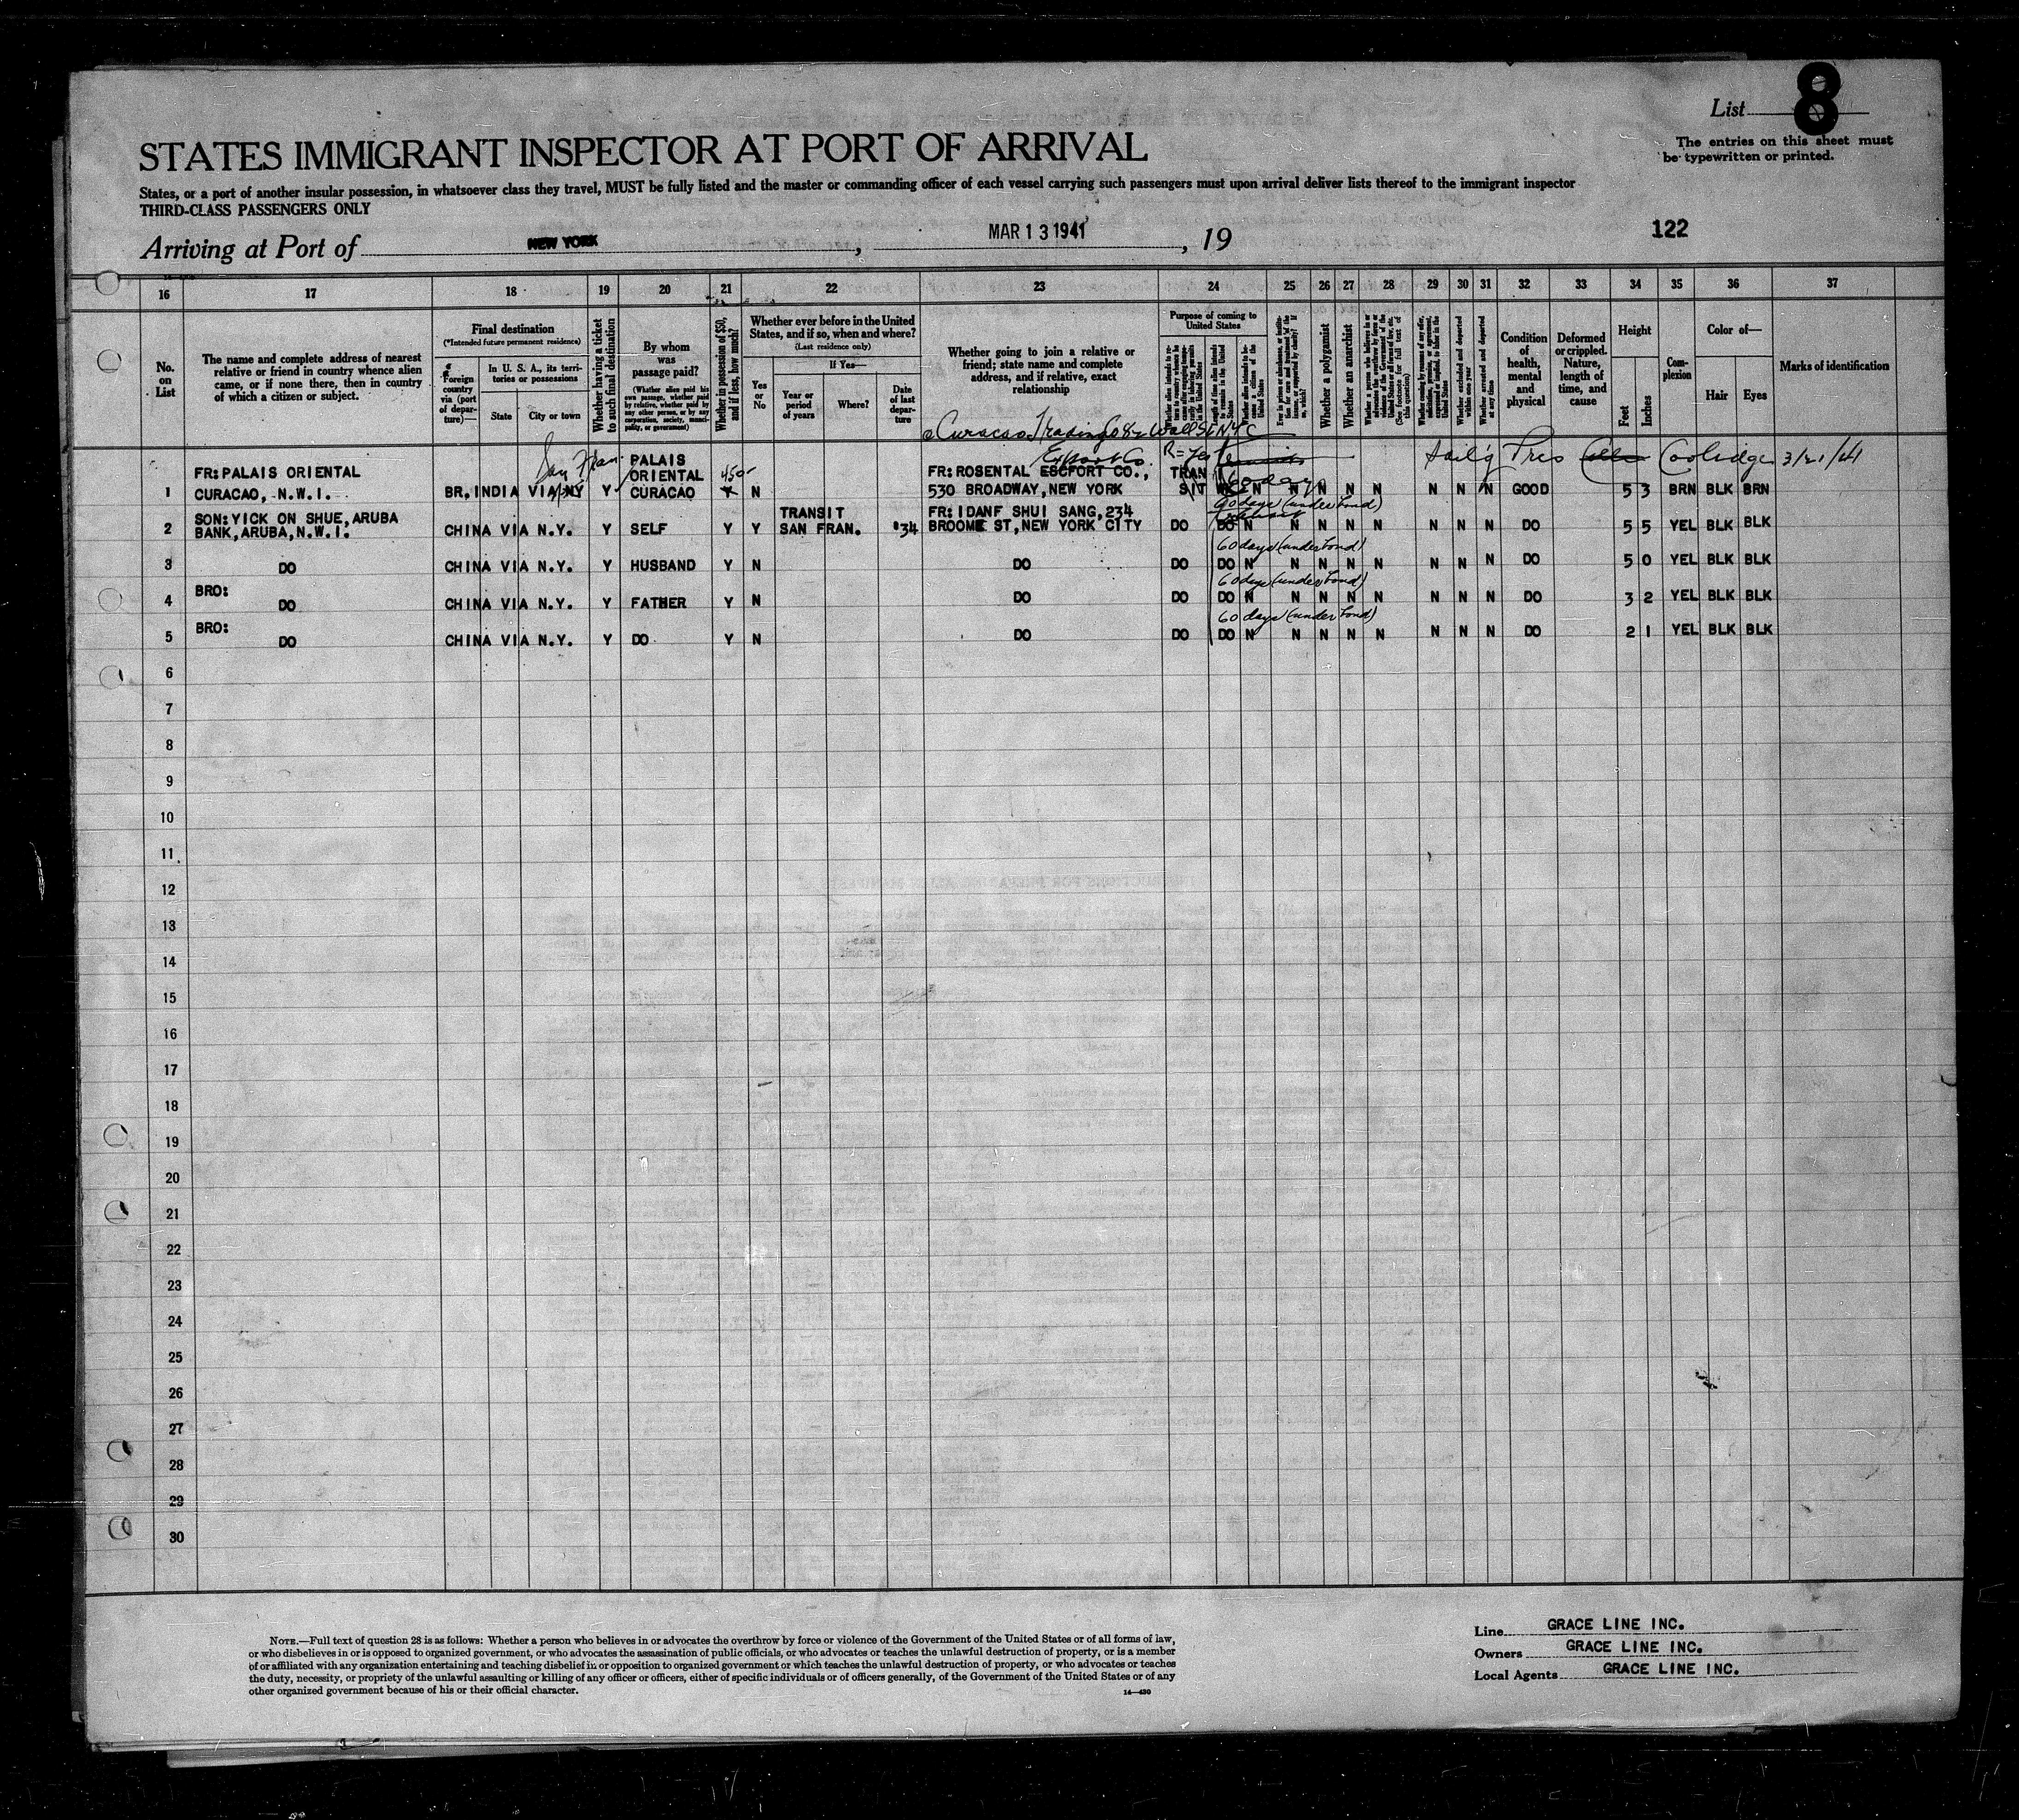 List 8
The entries on this sheet must
be typewritten or printed.
STATES IMMIGRANT INSPECTOR AT PORT OF ARRIVAL
States, or a port of another insular possession, in whatsoever class they travel, MUST be fully listed and the master or commanding officer of each vessel carrying such passengers must upon arrival deliver lists thereof to the immigrant inspector
THIRD-CLASS PASSENGERS ONLY
122
Arriving at Port of NEW YORK, MAR 13 1941, 19
16 17 18 19 20 21 22 23 24 25 26 27 28 29 30 31 32 33 34 35 36 37
No. on List
The name and complete address of nearest relative or friend in country whence alien came, or if none there, then in country of which a citizen or subject.
Final destination
(*Intended future permanent residence)
Foreign country via (port of departure)—
In U. S. A., its territories or possessions
State
City or town
Whether having a ticket to such final destination
By whom was passage paid?
(Whether alien paid his own passage, whether paid by relative, whether paid by any other person, or by any corporation, society, municipality, or government)
Whether in possession of $50, and if less, how much?
Whether ever before in the United States, and if so, when and where?
(Last residence only)
Yes or No
If Yes—
Year or period of years
Where?
Date of last departure
Whether going to join a relative or friend; state name and complete address, and if relative, exact relationship
Purpose of coming to United States
Whether a polygamist
Whether an anarchist
Whether excluded and deported within one year
Whether arrested and deported at any time
Condition of health, mental and physical
Deformed or crippled. Nature, length of time, and cause
Height
Feet
Inches
Complexion
Color of—
Hair
Eyes
Marks of identification
Curacao Trading Co 82 Wall St N.Y.C
San Fran.
Export Co.
R=Yes
Sail'g Pres Coolidge 3/21/41
1 FR: PALAIS ORIENTAL CURACAO, N.W.I. BR. INDIA VIA NY Y PALAIS ORIENTAL CURACAO 450- Y N FR: ROSENTAL ESCFORT CO., 530 BROADWAY, NEW YORK TRAN SIT 60 days N N N N N N N N GOOD 5 3 BRN BLK BRN
2 SON: YICK ON SHUE, ARUBA BANK, ARUBA, N.W.I. CHINA VIA N.Y. Y SELF Y Y TRANSIT SAN FRAN. '34 FR: IDANF SHUI SANG, 234 BROOME ST, NEW YORK CITY DO DO N N N N N N N N DO 5 5 YEL BLK BLK
90 days (under bond)
3 DO CHINA VIA N.Y. Y HUSBAND Y N DO DO DO N N N N N N N N DO 5 0 YEL BLK BLK
60 days (under bond)
4 BRO: DO CHINA VIA N.Y. Y FATHER Y N DO DO DO N N N N N N N N DO 3 2 YEL BLK BLK
60 days (under bond)
5 BRO: DO CHINA VIA N.Y. Y DO Y N DO DO DO N N N N N N N N DO 2 1 YEL BLK BLK
60 days (under bond)
6
7
8
9
10
11
12
13
14
15
16
17
18
19
20
21
22
23
24
25
26
27
28
29
30
NOTE.—Full text of question 28 is as follows: Whether a person who believes in or advocates the overthrow by force or violence of the Government of the United States or of all forms of law,
or who disbelieves in or is opposed to organized government, or who advocates the assassination of public officials, or who advocates or teaches the unlawful destruction of property, or is a member
of or affiliated with any organization entertaining and teaching disbelief in or opposition to organized government or which teaches the unlawful destruction of property, or who advocates or teaches
the duty, necessity, or propriety of the unlawful assaulting or killing of any officer or officers, either of specific individuals or of officers generally, of the Government of the United States or of any
other organized government because of his or their official character.
14—430
Line GRACE LINE INC.
Owners GRACE LINE INC.
Local Agents GRACE LINE INC.